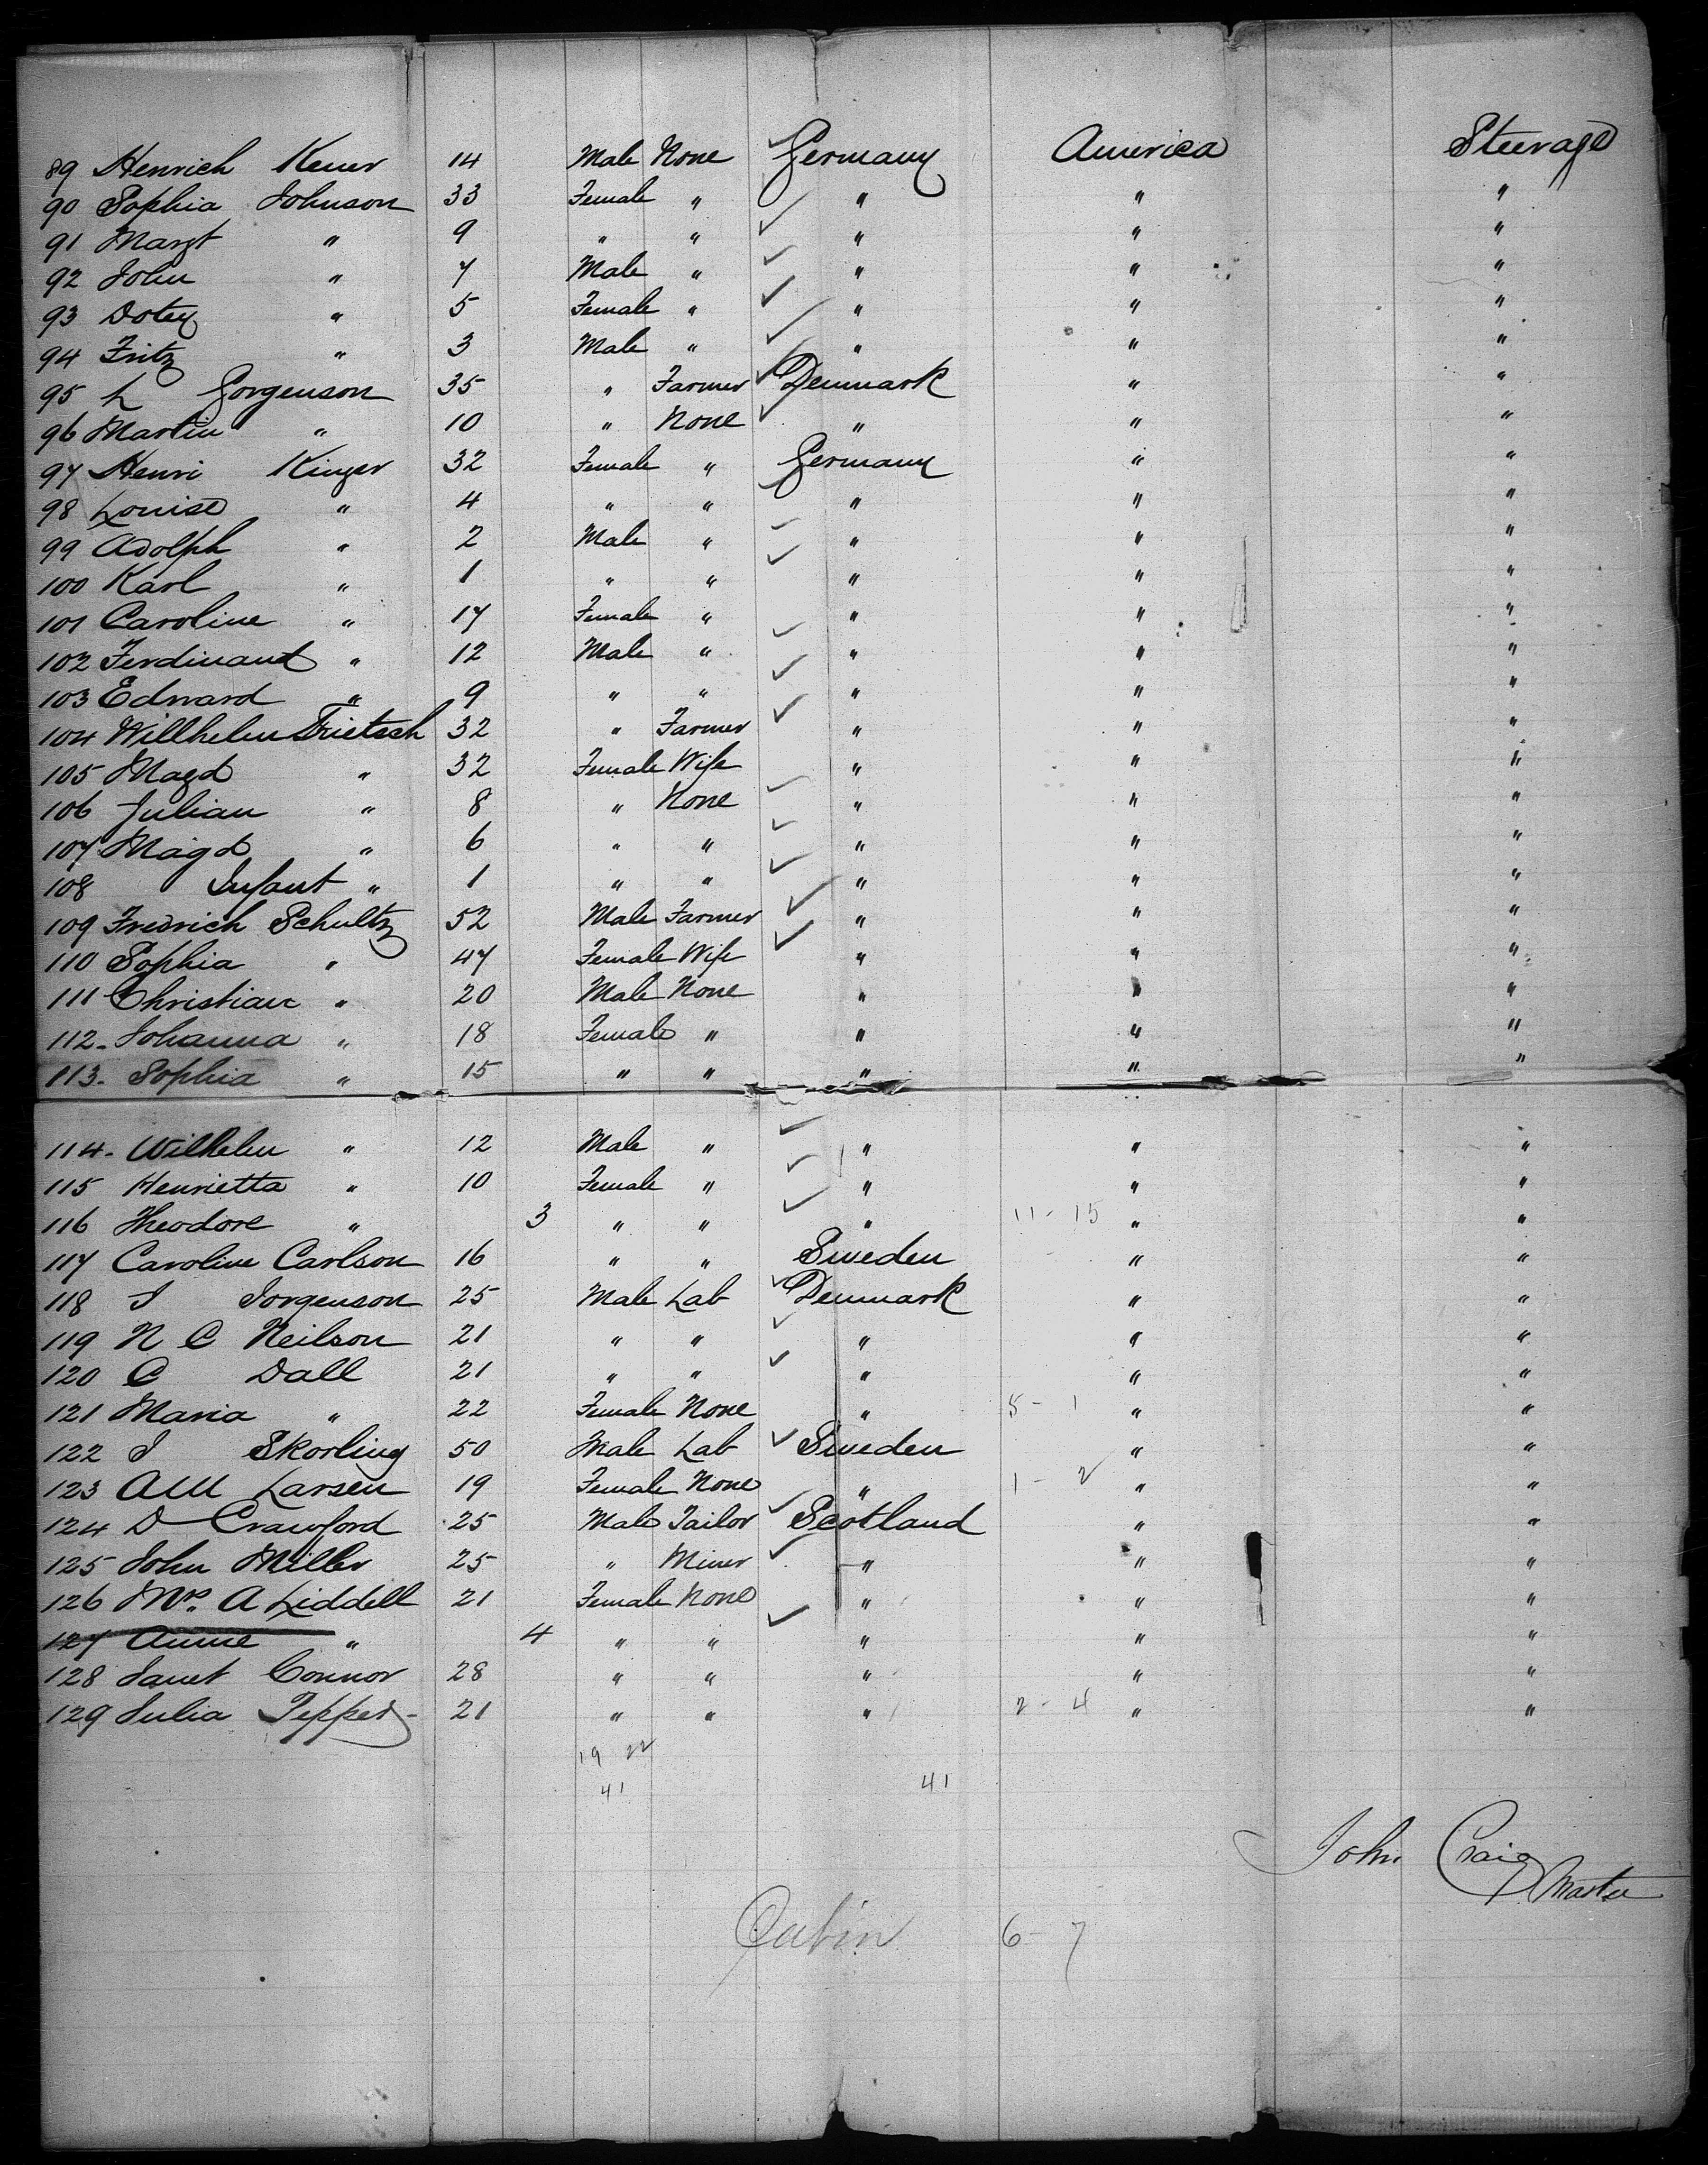 89 Henrich Keuer 14 Male None Germany America Steerage
90 Sophia Johnson 33 Female " " " "
91 Margt " 9 " " " " "
92 John " 7 Male " " " "
93 Dotey " 5 Female " " " "
94 Fritz " 3 Male " " " "
95 L Gorgenson 35 " Farmer Denmark " "
96 Martin " 10 " None " " "
97 Henri Kinger 32 Female " Germany " "
98 Louise " 4 " " " " "
99 Adolph " 2 Male " " " "
100 Karl " 1 " " " " "
101 Caroline " 17 Female " " " "
102 Ferdinand " 12 Male " " " "
103 Edward " 9 " " " " "
104 Willhelm Frietsch 32 " Farmer " " "
105 Magd " 32 Female Wife " " "
106 Julian " 8 " None " " "
107 Magd " 6 " " " " "
108 Infant " 1 " " " " "
109 Fredrich Schultz 52 Male Farmer " " "
110 Sophia " 47 Female Wife " " "
111 Christian " 20 Male None " " "
112 - Johanna " 18 Female " " " "
113 - Sophia " 15 " " " " "
114 - Wilhelm " 12 Male " " " "
115 Henrietta " 10 Female " " " "
116 Theodore " 3 " " " 11 - 15 " "
117 Caroline Carlson 16 " " Sweden " "
118 J Jorgenson 25 Male Lab Denmark " "
119 N C Neilson 21 " " " " "
120 C Dall 21 " " " " "
121 Maria " 22 Female None " 5 - 1 " "
122 J Skorling 50 Male Lab Sweden " "
123 AM Larsen 19 Female None " 1 - 2 " "
124 D Crawford 25 Male Tailor Scotland " "
125 John Miller 25 " Miner " " "
126 Mrs. A Liddell 21 Female None " " "
127 Annie " 4 " " " " "
128 Janet Connor 28 " " " " "
129 Julia Pepper 21 " " " 2 - 4 " "
19 22
41 41
John Craig
Master
Cabin 6 - 7